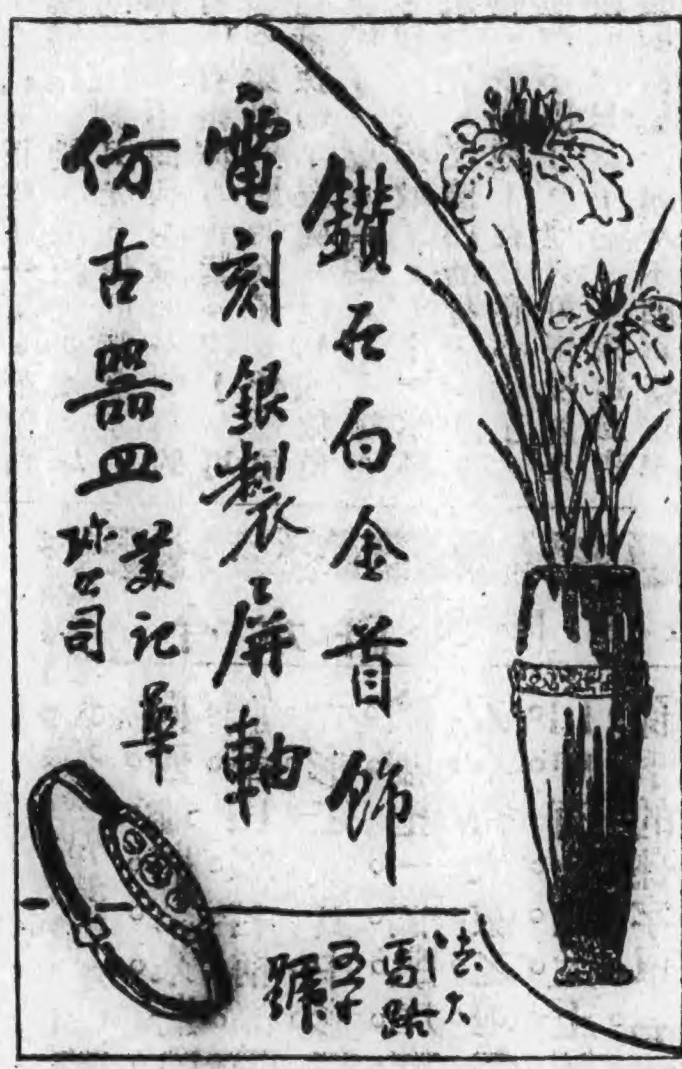 鑽石白金首飾
電刻銀製屏軸
仿古器皿
美記華
珍公司
法大
馬路
號